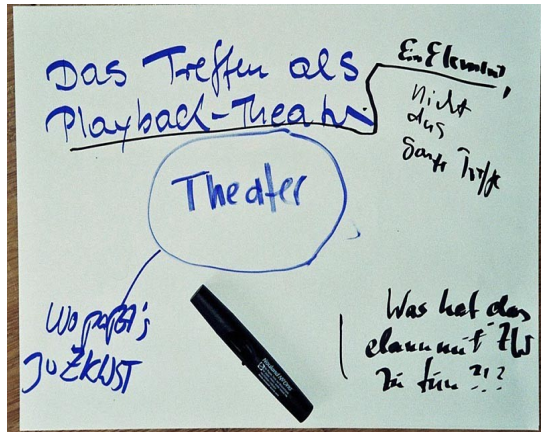 Das Treffen als
Playback-Theater
Ein Element,
nicht
das
ganze Treffen
Theater
Wo paßt's
zu ZKNST
Was hat das
dann mit ZW
zu tun ?!?